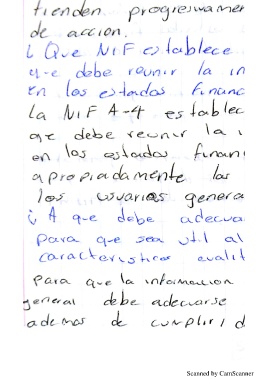 tienden progresivamen
de acción.
¿ Que NIF establece
que debe reunir la in
en los estados financ
la NIF A-4 establec
que debe reunir la i
en los estados finan
apropiadamente las
los usuarios genera
¿ A que debe adecua
para que sea util al
caracteristicas cualit
para que la informacion
general debe adecuarse
ademas de cumplir d
Scanned by CamScanner